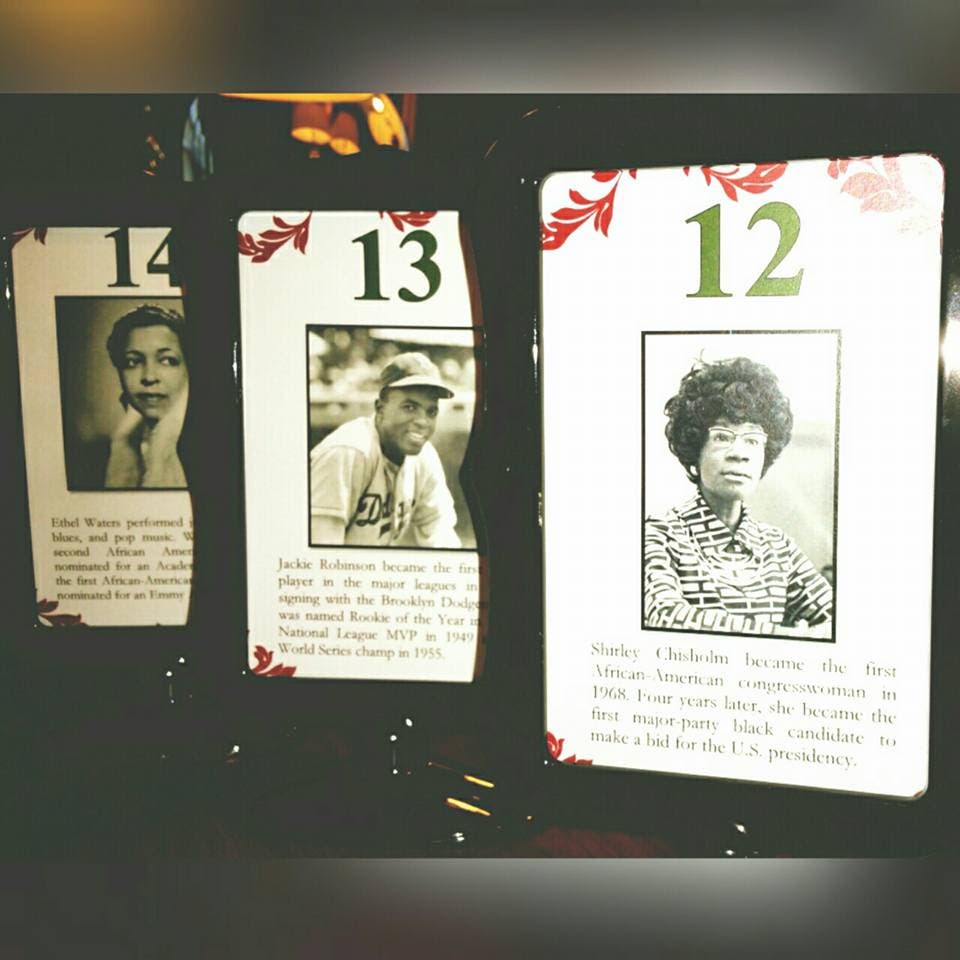 14
Ethel Waters performed
blues, and pop music.
second African Amer
nominated for an Acade
the first African-America
nominated for an Emmy
13
Jackie Robinson became the first
player in the major leagues in
signing with the Brooklyn Dodge
was named Rookie of the Year in
National League MVP in 1949
World Series champ in 1955.
12
Shirley Chisholm became the first
African-American congresswoman in
1968. Four years later, she became the
first major-party black candidate to
make a bid for the U.S. presidency.